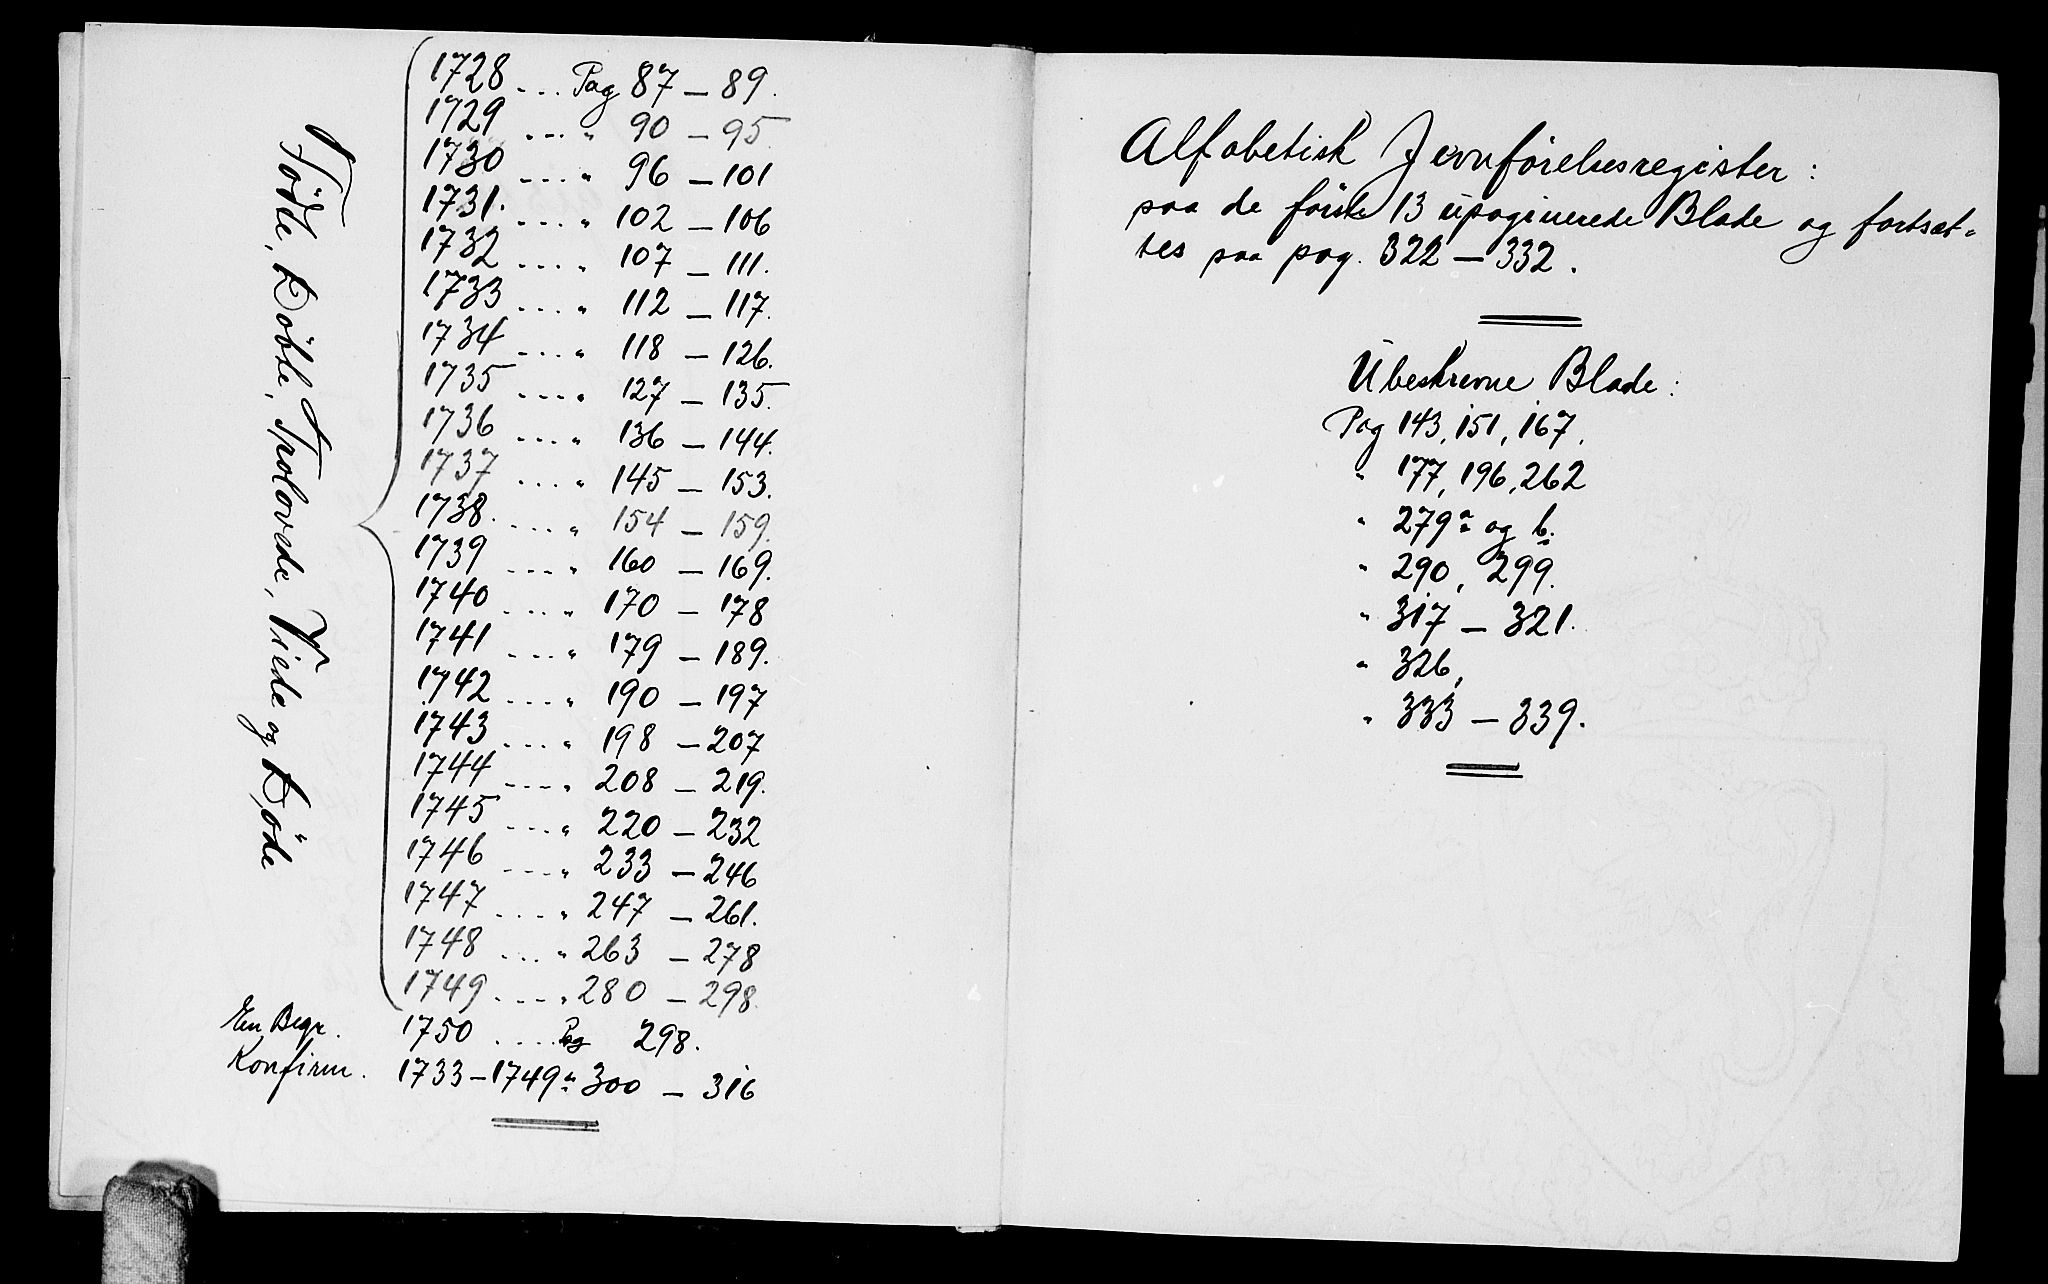 Födte, Döbte, Trolovede, Viede og Döde
1728 ... Pag 87 — 89.
1729 ... " 90 — 95
1730 ... " 96 — 101
1731. ... " 102 — 106
1732 .... " 107 — 111.
1733 .... " 112 — 117.
1734 .... " 118 — 126.
1735 .... " 127 — 135.
1736 .... " 136 — 144.
1737 .... " 145 — 153.
1738. .... " 154 — 159.
1739 .... " 160 — 169.
1740 .... " 170 — 178
1741 .... " 179 — 189.
1742 .... " 190 — 197
1743 .... " 198 — 207
1744 .... " 208 — 219.
1745 .... " 220 — 232
1746 .... " 233 — 246
1747 .... " 247 — 261.
1748 .... " 263 — 278
1749 .... " 280 — 298.
En Begr. 1750 ..... Pag 298.
Konfirm. 1733 — 1749 " 300 — 316
Alfabetisk Jevnförelsesregister :
paa de förste 13 upaginerede Blade og fortsæt-
tes paa pag. 322 — 332.
Ubeskrevne Blade :
Pag 143, 151, 167.
" 177, 196, 262
" 279 a og b.
" 290, 299.
" 317 — 321.
" 326,
" 333 — 339.